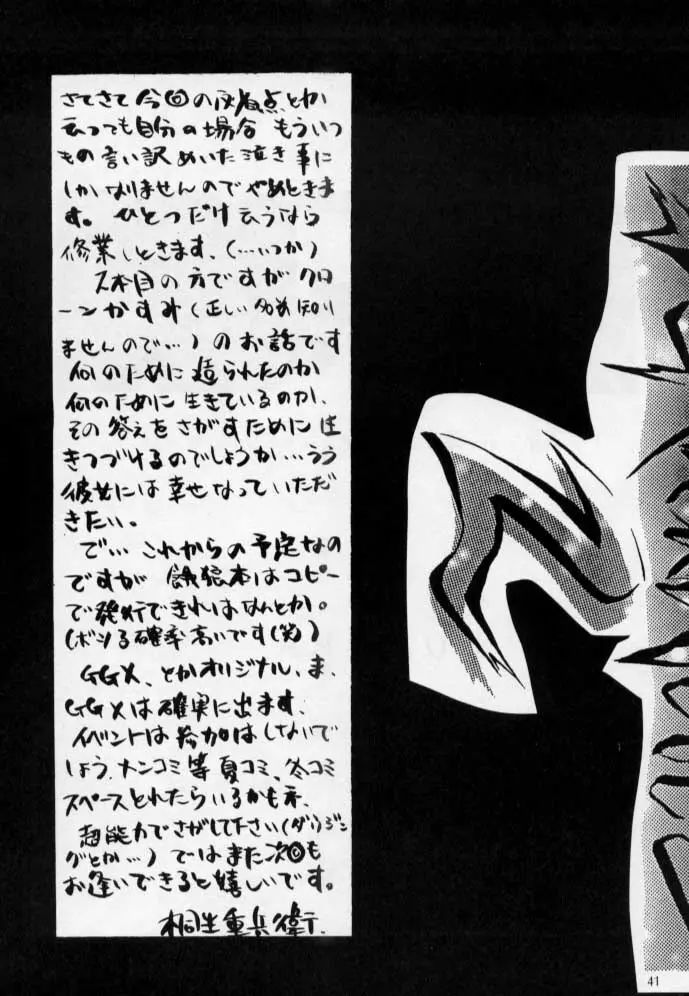 さてさて今回の反省点とか
云っても自分の場合 もういつ
もの言い訳めいた泣き事に
しかなりませんのでやめときま
す。ひとつだけ云うなら
修業しときます、(…いつか)
本目の方ですがクロ
ーンかすみ(正しい名前知り
ませんので…)のお話です
何のために造られたのか
何のために生きているのか、
その答えをさがすために生
きつづけるのでしょうか…うう
彼女には幸せなっていただ
きたい。
で… これからの予定なの
ですが 餓狼本はコピー
で発行できればなんとか。
(ボツる確率高いです(笑))
GGX、とかオリジナル、ま、
GGXは確実に出ます、
イベントは参加はしないで
しょう、ナンコミ等夏コミ、冬コミ
スペースとれたらいるかもネ、
超能力でさがして下さい(ダウジン
グとか…)ではまた次回も
お逢いできると嬉しいです。
桐生重兵衛.
41